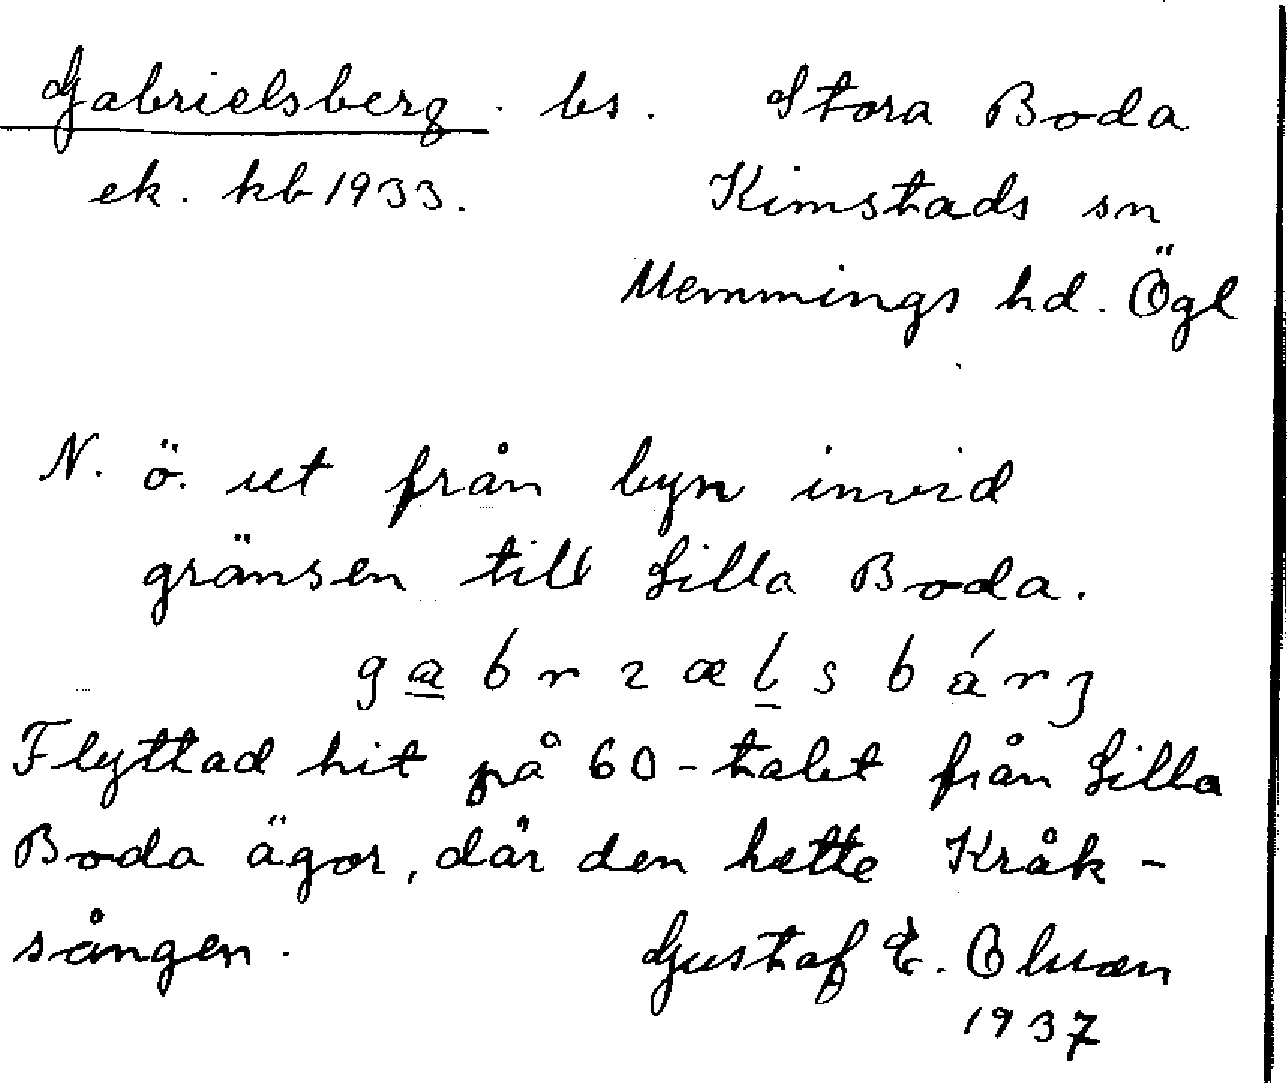 Gabrielsberg. bs. Stora Boda
ek. kb 1933. Kimstads sn
Memmings hd. Ögl
N. ö. ut från byn invid
gränsen till Lilla Boda.
gabrzælsbárȝ
Flyttad hit på 60-talet från Lilla
Boda ägor, där den hette Kråk-
sången. Gustaf E. Olsson
1937